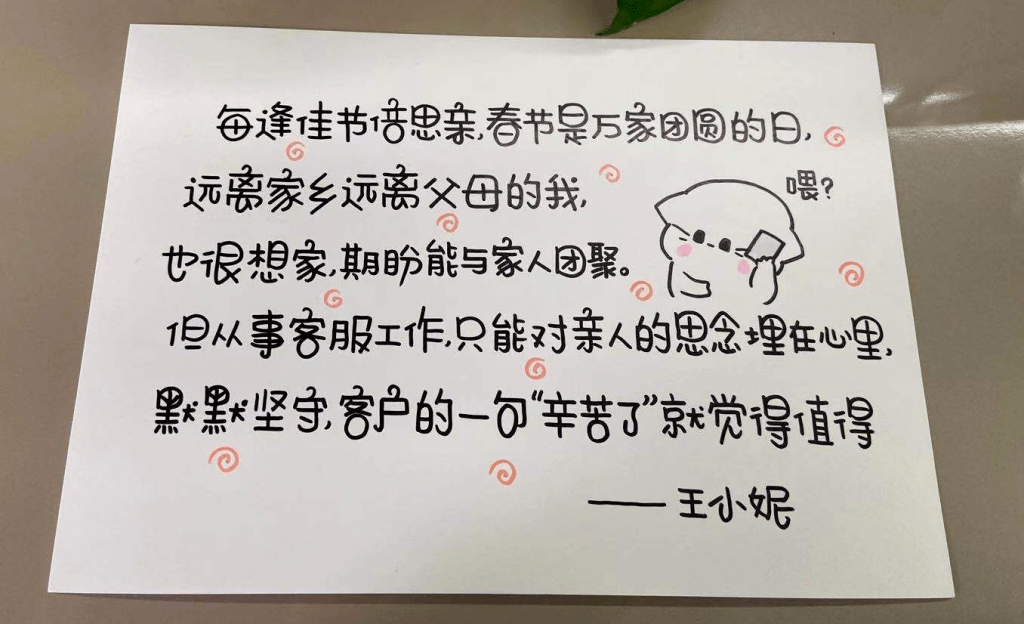 每逢佳节倍思亲,春节是万家团圆的日,
远离家乡远离父母的我,
喂?
也很想家,期盼能与家人团聚。
但从事客服工作,只能对亲人的思念埋在心里,
默默坚守,客户的一句“辛苦了”就觉得值得
——王小妮